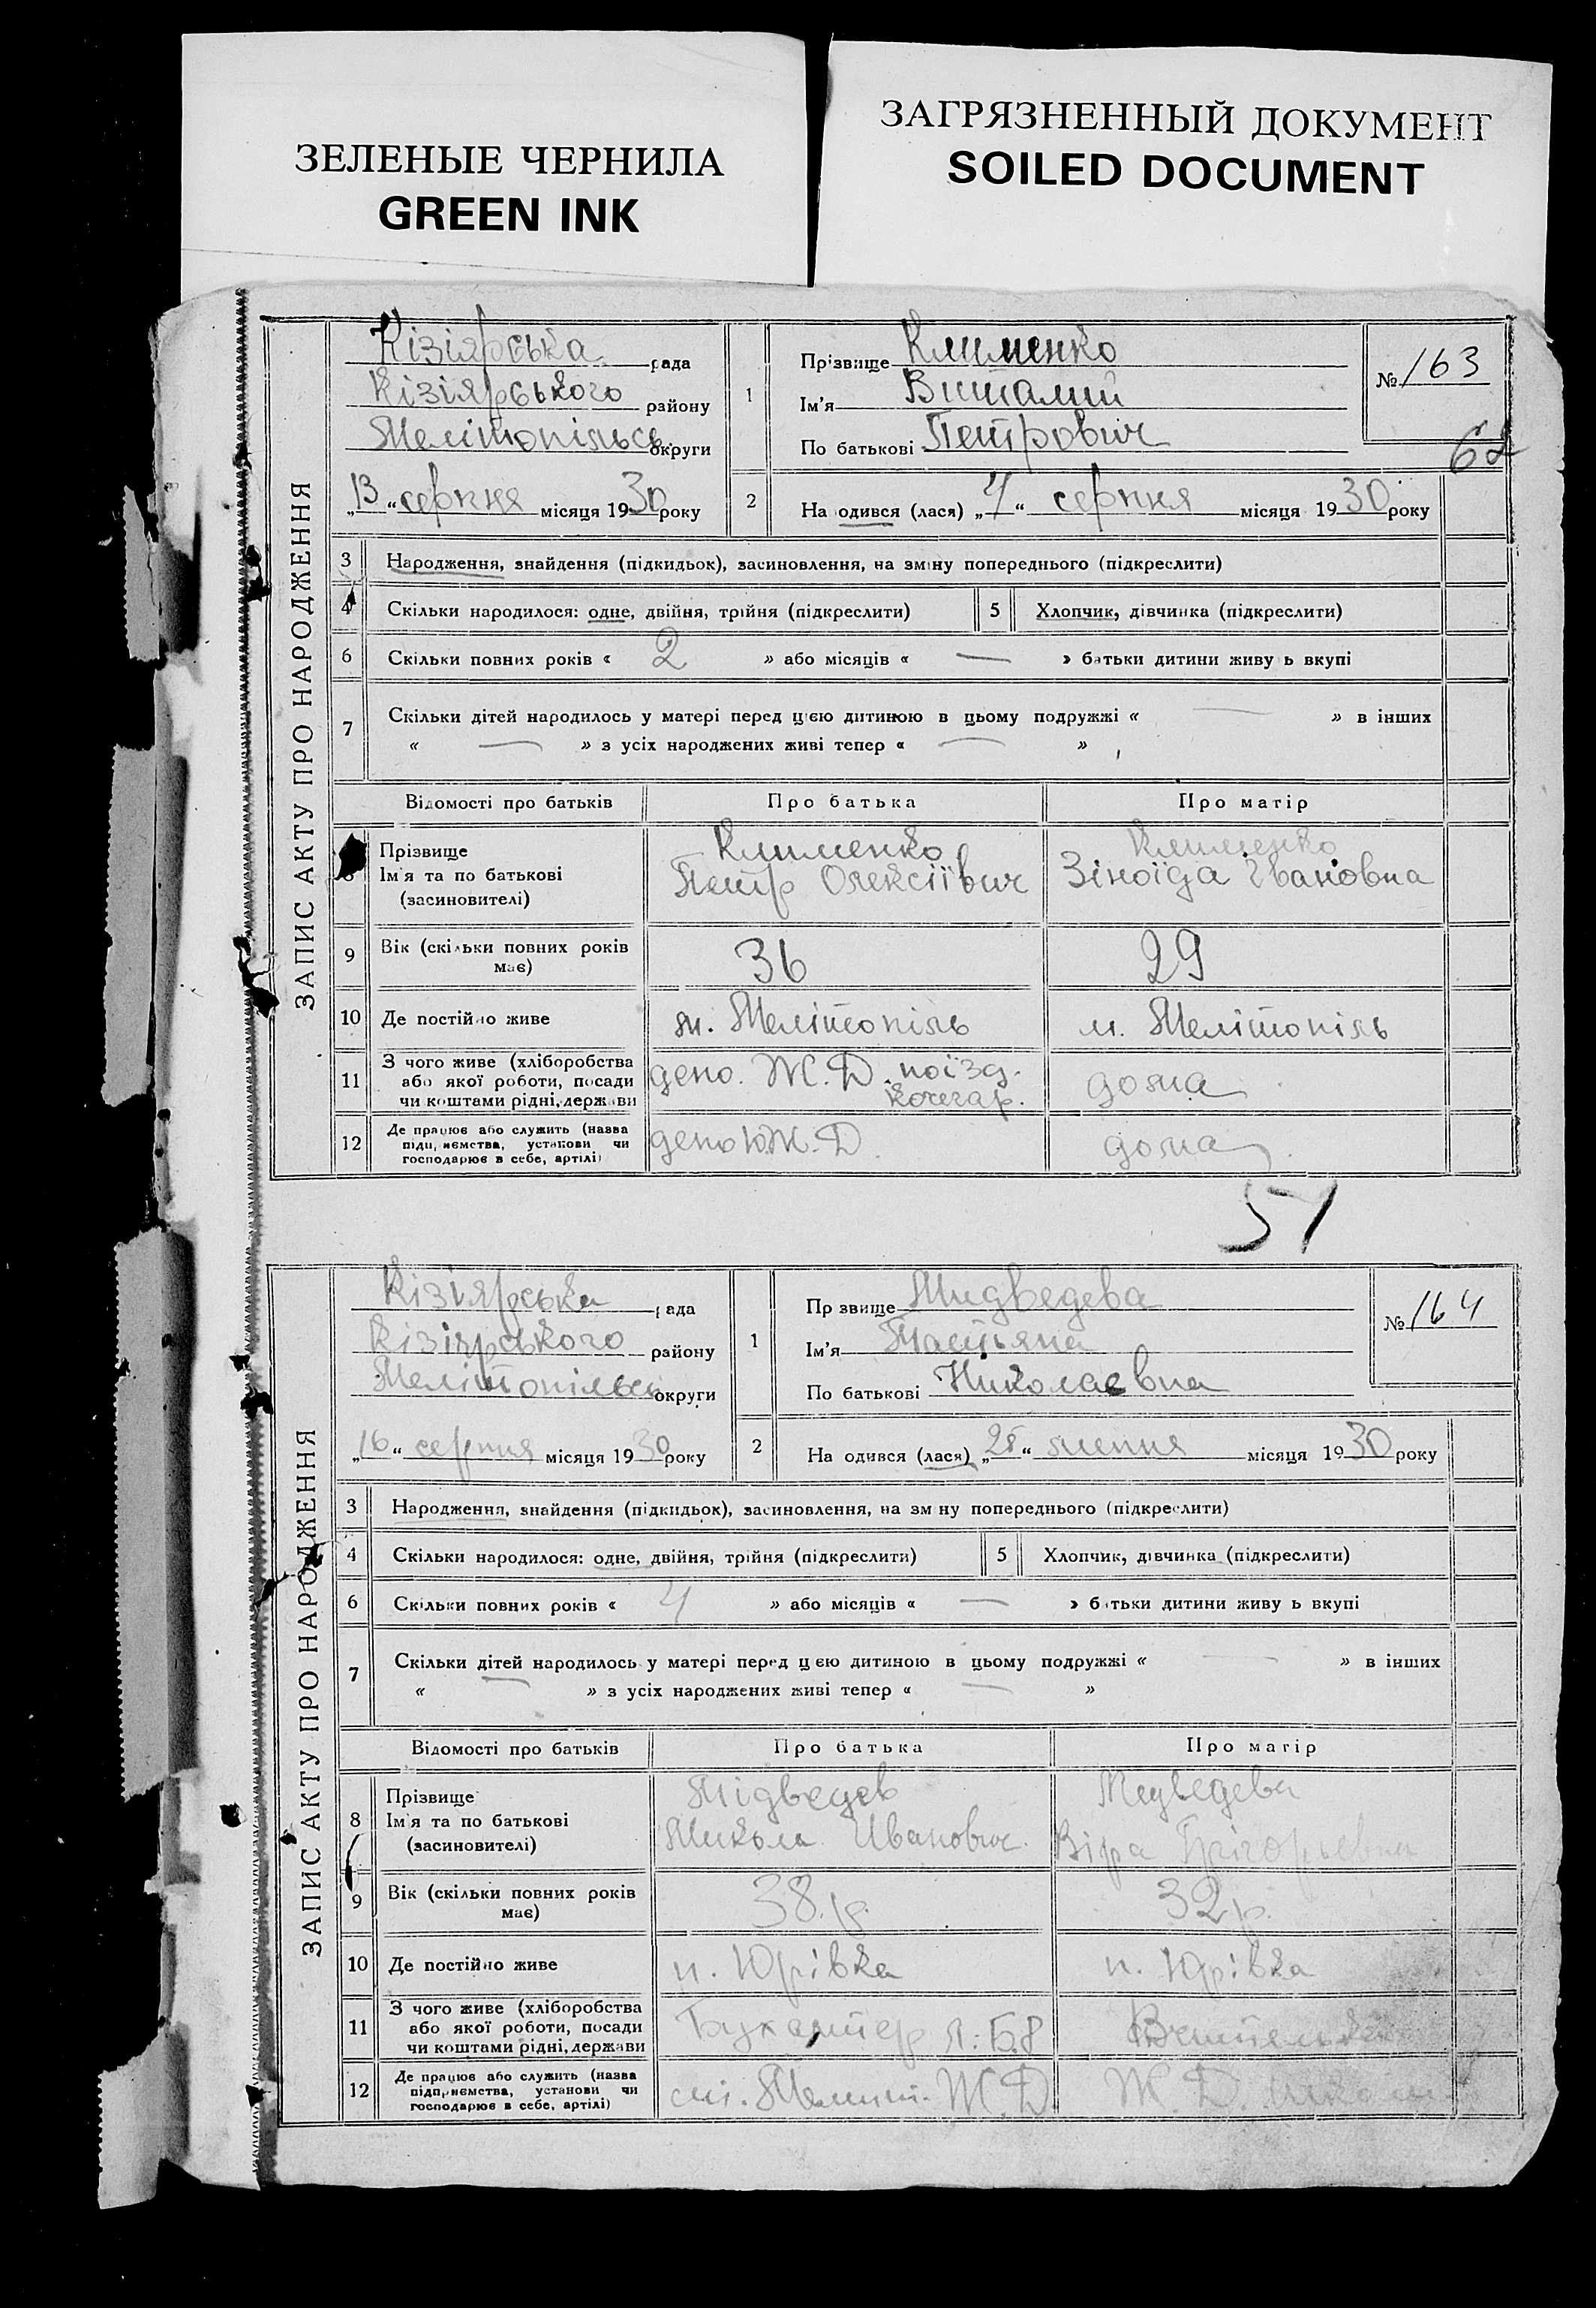 ЗЕЛЕНЫЕ ЧЕРНИЛА
GREEN INK
ЗАГРЯЗНЕННЫЙ ДОКУМЕНТ
SOILED DOCUMENT
ЗАПИС АКТУ ПРО НАРОДЖЕННЯ
Кізіярська рада
Кізіярського району
Мелітопільсь. округи
„13“ серпня місяця 1930 року
1 Прізвище Клименко
Ім'я Виталий
По батькові Петрович
№ 163
62
2 На одився (лася) „4“ серпня місяця 1930 року
3 Народження, знайдення (підкидьок), засиновлення, на зміну попереднього (підкреслити)
4 Скільки народилося: одне, двійня, трійня (підкреслити) 5 Хлопчик, дівчинка (підкреслити)
6 Скільки повних років « 2 » або місяців « — » батьки дитини живу ь вкупі
7 Скільки дітей народилось у матері перед цією дитиною в цьому подружжі « — » в інших
« — » з усіх народжених живі тепер « — »
Відомості про батьків Про батька Про матір
8 Прізвище Клименко Клименко
Ім'я та по батькові Петр Олексіївич Зіноїда Івановна
(засиновителі)
9 Вік (скільки повних років має) 36 29
10 Де постійно живе м. Мелітопіль м. Мелітопіль
11 З чого живе (хліборобства або якої роботи, посади чи коштами рідні, держави депо. Ж.Д. поїзд. кочегар. дома
12 Де працює або служить (назва підприємства, установи чи господарює в себе, артілі) депо Ю.Ж.Д. дома
51
ЗАПИС АКТУ ПРО НАРОДЖЕННЯ
Кізіярська рада
Кізіярського району
Мелітопільсь округи
„16“ серпня місяця 1930 року
1 Пр звище Мидведева
Ім'я Татьяна
По батькові Николаевна
№ 164
2 На одився (лася) „28“ липня місяця 1930 року
3 Народження, знайдення (підкидьок), засиновлення, на зм ну попереднього (підкреслити)
4 Скільки народилося: одне, двійня, трійня (підкреслити) 5 Хлопчик, дівчинка (підкреслити)
6 Скільки повних років « 4 » або місяців « — » батьки дитини живу ь вкупі
7 Скільки дітей народилось у матері перед цією дитиною в цьому подружжі « — » в інших
« — » з усіх народжених живі тепер « — »
Відомості про батьків Про батька Про матір
8 Прізвище Мідведев Медведева
Ім'я та по батькові Микола Иванович. Віра Григорьевна
(засиновителі)
9 Вік (скільки повних років має) 38 р. 32 р.
10 Де постійно живе п. Юрівка п. Юрівка
11 З чого живе (хліборобства або якої роботи, посади чи коштами рідні, держави Бухалтер
12 Де працює або служить (назва підприємства, установи чи господарює в себе, артілі) ст. Мелит. Ж.Д. Ж.Д.